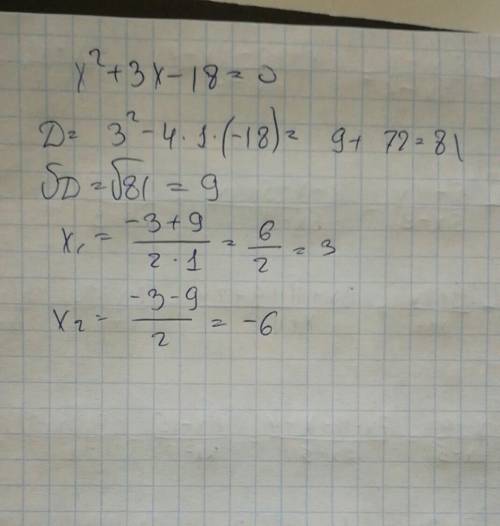 x²+3x-18=0
D= 3²-4·1·(-18)= 9+ 72=81
√D=√81=9
x₁= (-3+9)/(2·1) = 6/2 =3
x₂= (-3-9)/2 = -6